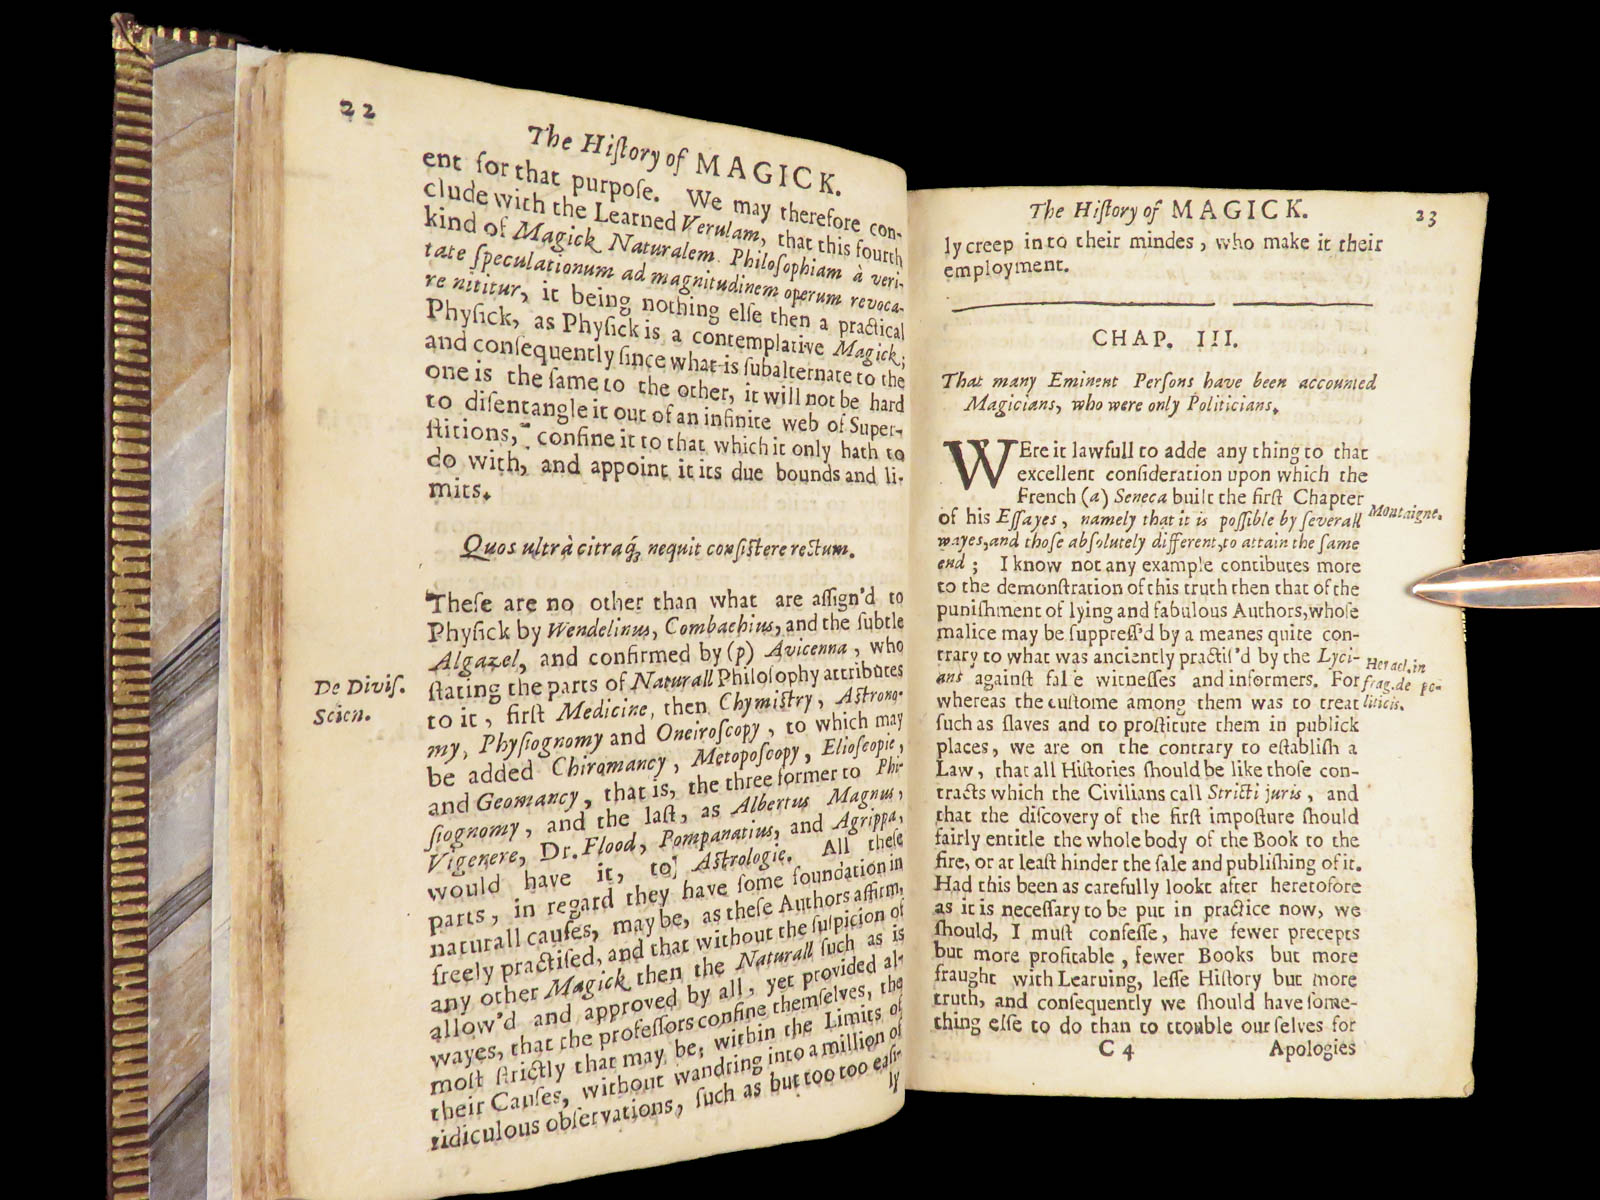 22
The Hiſtory of MAGICK.
ent for that purpoſe. We may therefore con-
clude with the Learned Verulam, that this fourth
kind of Magick Naturalem Philoſophiam à veri-
tate ſpeculationum ad magnitudinem operum revoca-
re nititur, it being nothing elſe then a practical
Phyſick, as Phyſick is a contemplative Magick;
and conſequently ſince what is ſubalternate to the
one is the ſame to the other, it will not be hard
to diſentangle it out of an infinite web of Super-
ſtitions, confine it to that which it only hath to
do with, and appoint it its due bounds and li-
mits.
Quos ultrà citraq; nequit conſiſtere rectum.
Theſe are no other than what are aſſign'd to
Phyſick by Wendelinus, Combachius, and the ſubtle
Algazel, and confirmed by (p) Avicenna, who
De Diviſ.
Scien.
ſtating the parts of Naturall Philoſophy attributes
to it, firſt Medicine, then Chymiſtry, Aſtrono-
my, Phyſiognomy and Oneiroſcopy, to which may
be added Chiromancy, Metopoſcopy, Elioſcopie,
and Geomancy, that is, the three former to Phi-
ſiognomy, and the laſt, as Albertus Magnus,
Vigenere, Dr. Flood, Pompanatius, and Agrippa,
would have it, to] Aſtrologie. All theſe
parts, in regard they have ſome foundation in
naturall cauſes, may be, as theſe Authors affirm,
freely practiſed, and that without the ſuſpicion of
any other Magick then the Naturall ſuch as is
allow'd and approved by all, yet provided al-
wayes, that the profeſſors confine themſelves, the
moſt ſtrictly that may be, within the Limits of
their Cauſes, without wandring into a million of
ridiculous obſervations, ſuch as but too too eaſi-
ly
The Hiſtory of MAGICK.
23
ly creep into their mindes, who make it their
employment.
CHAP. III.
That many Eminent Perſons have been accounted
Magicians, who were only Politicians.
WEre it lawfull to adde any thing to that
excellent conſideration upon which the
French (a) Seneca built the firſt Chapter
Montaigne.
of his Eſſayes, namely that it is poſſible by ſeverall
wayes, and thoſe abſolutely different, to attain the ſame
end; I know not any example contibutes more
to the demonſtration of this truth then that of the
puniſhment of lying and fabulous Authors, whoſe
malice may be ſuppreſſ'd by a meanes quite con-
trary to what was anciently practiſ'd by the Lyci-
Herael. in
frag. de po-
liticis.
ans againſt falſe witneſſes and informers. For
whereas the cuſtome among them was to treat
ſuch as ſlaves and to proſtitute them in publick
places, we are on the contrary to eſtabliſh a
Law, that all Hiſtories ſhould be like thoſe con-
tracts which the Civilians call Stricti juris, and
that the diſcovery of the firſt impoſture ſhould
fairly entitle the whole body of the Book to the
fire, or at leaſt hinder the ſale and publiſhing of it.
Had this been as carefully lookt after heretofore
as it is neceſſary to be put in practice now, we
ſhould, I muſt confeſſe, have fewer precepts
but more profitable, fewer Books but more
fraught with Learning, leſſe Hiſtory but more
truth, and conſequently we ſhould have ſome-
thing elſe to do than to trouble our ſelves for
C 4
Apologies